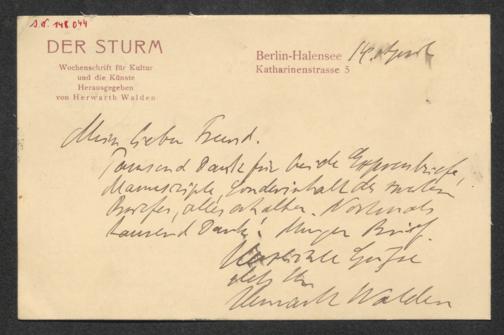 s.d. 148 044
DER STURM
Wochenschrift für Kultur
und die Künste
Herausgegeben
von Herwarth Walden
Berlin-Halensee 14.
Katharinenstrasse 5
Mein lieber Freund.
Tausend Dank für beide Expressbriefe,
Manuscripte, Sonderinhalt des zweiten
Briefes, alles erhalten. Nochmals
tausend Dank! Morgen Brief.
Herzliche Grüsse
stets Ihr
Herwarth Walden